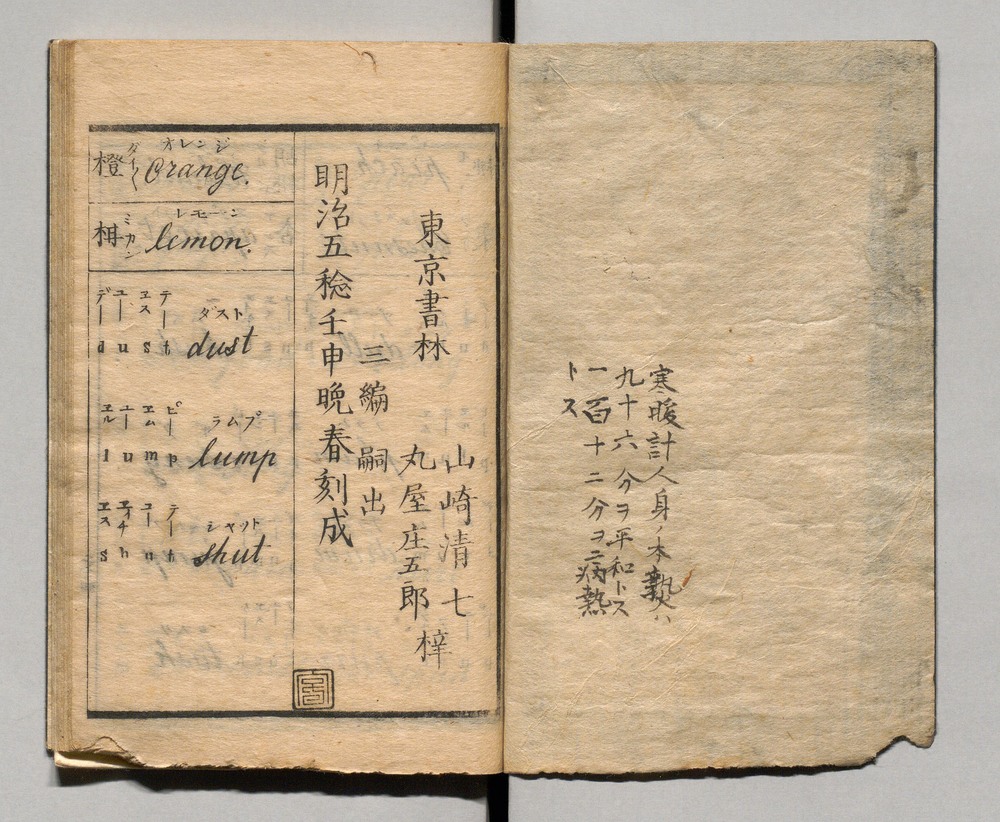 寒暖計人身ノ本熱ハ
九十六分ヲ平和トス
一百十二分ヲニ病熱
トス
東京書林
山崎清七
丸屋庄五郎
梓
三編嗣出
明治五稔壬申晩春刻成
オレンジ
橙 ダイ〱 Orange.
レモーン
柑 ミカン lemon.
デー ユー ヱス テー ダスト
d u s t dust
ヱル ユー ヱム ピー ラムプ
l u m p lump
ヱス ヱイチ ユー テー シャット
s h u t shut